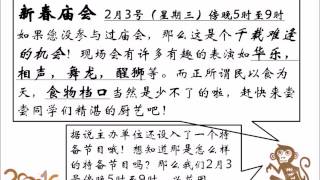 新春庙会 2月3号（星期三）傍晚5时至9时
如果您没参与过庙会，那么这是个千载难逢
的机会！现场会有许多有趣的表演如华乐，
相声，舞龙，醒狮等。而正所谓民以食为
天，食物档口当然是少不了的啦，赶快来尝
尝同学们精湛的厨艺吧！
据说主办单位还设入了一个特
备节目哦！想知道那是怎么样
的特备节目吗？那么我们2月3
号傍晚5时至9时，